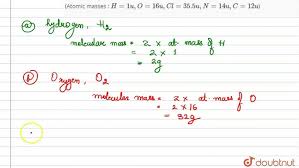 (Atomic masses : H = 1u, O = 16u, Cl = 35.5u, N = 14u, C = 12u)
(a) hydrogen, H₂
molecular mass = 2 × at. mass of H
= 2 × 1
= 2g
(b) Oxygen, O₂
molecular mass = 2 × at. mass of O
= 2 × 16
= 32g
doubtnut